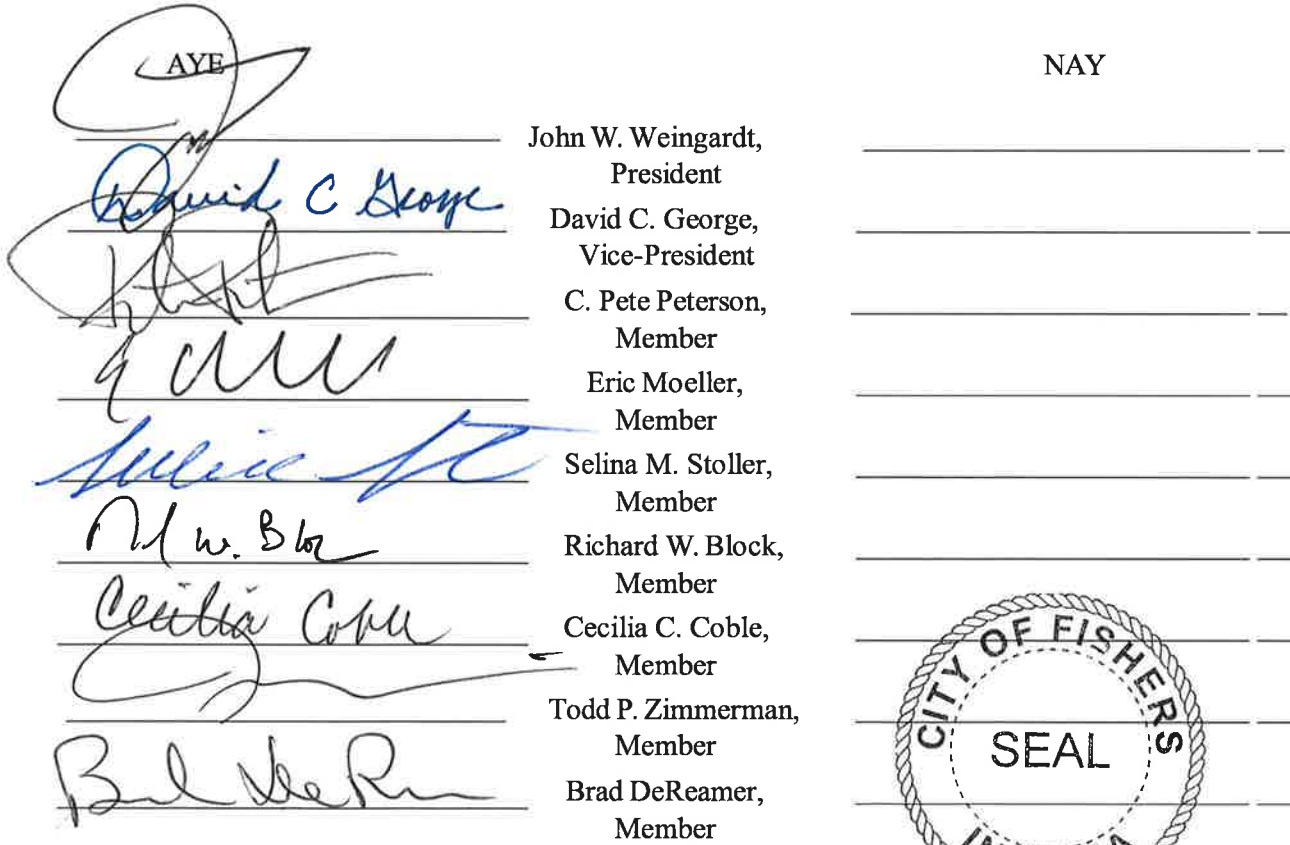 AYE NAY
John W. Weingardt,
President
David C George
David C. George,
Vice-President
C. Pete Peterson,
Member
Eric Moeller,
Member
Selina M. Stoller,
Member
W. Blo
Richard W. Block,
Member
Cecilia Coble
Cecilia C. Coble,
Member
Todd P. Zimmerman,
Member
Brad DeReamer,
Member
CITY OF FISHERS
SEAL